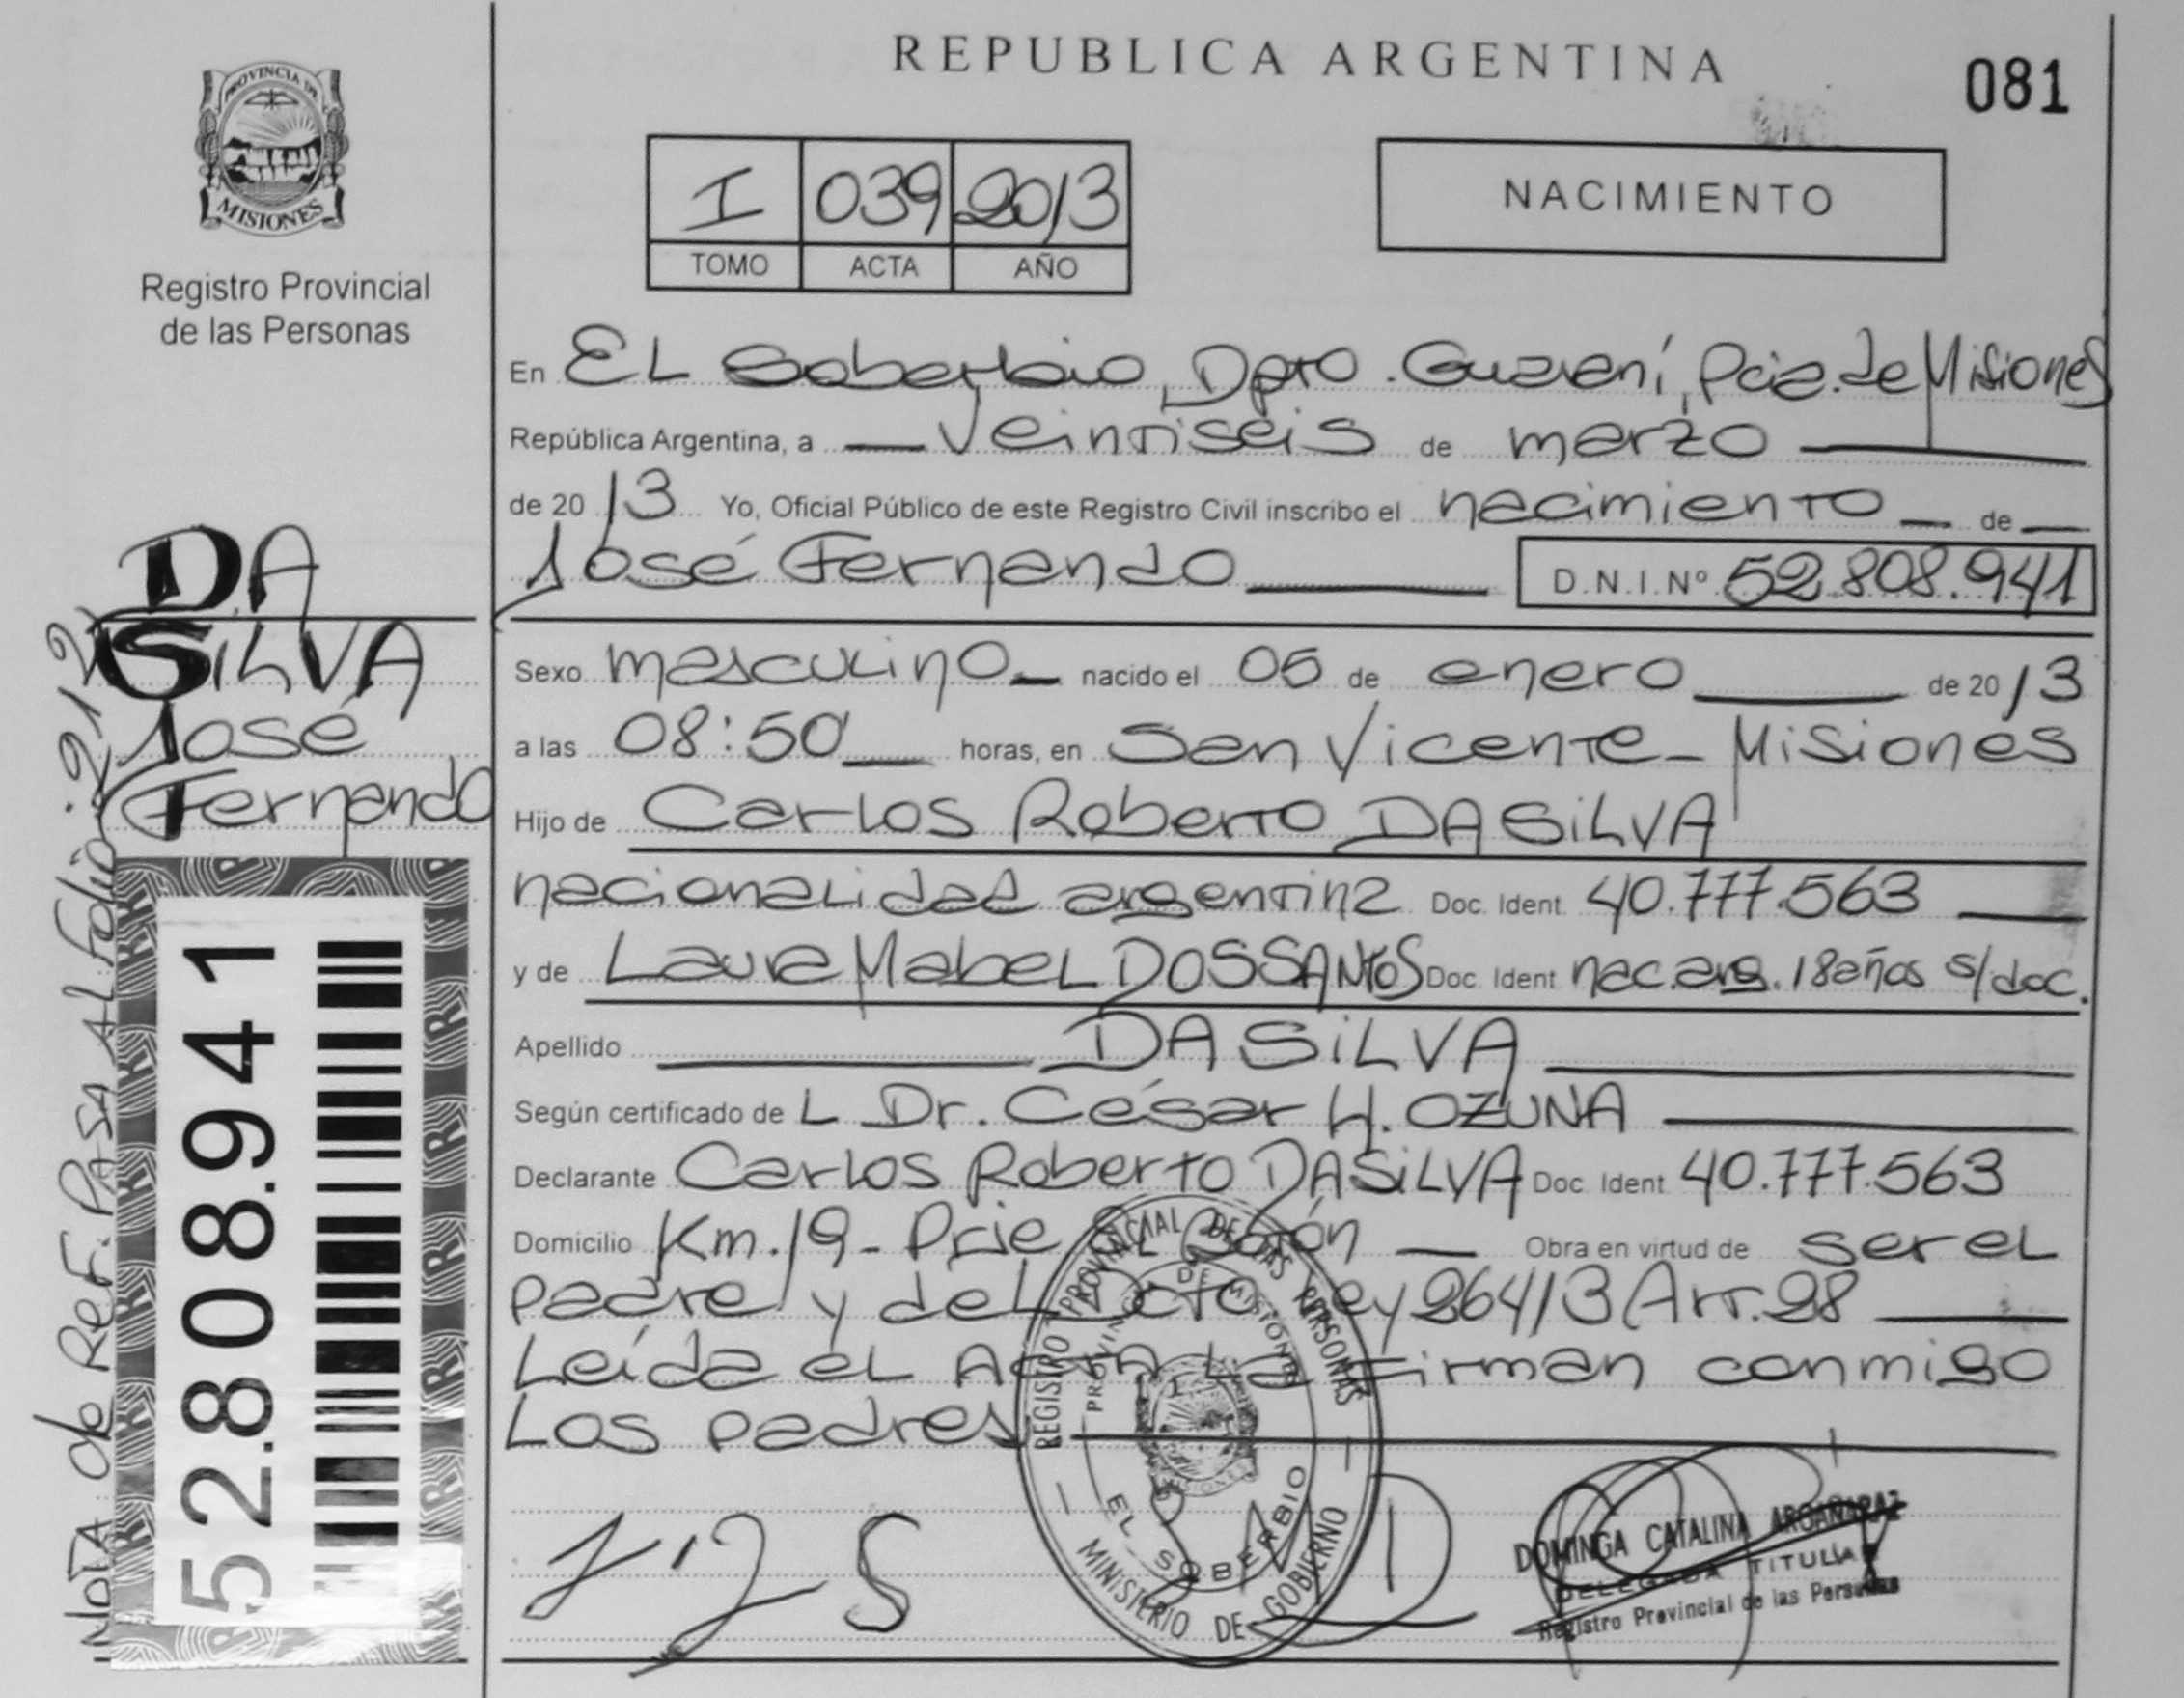 REPUBLICA ARGENTINA
081
PROVINCIA DE
MISIONES
Registro Provincial
de las Personas
I 039 2013
TOMO ACTA AÑO
NACIMIENTO
En EL Soberbio, Dpto. Guaraní, Pcia. de Misiones
República Argentina, a veintiséis de marzo
de 2013 Yo, Oficial Público de este Registro Civil inscribo el nacimiento de
José Fernando D.N.I.Nº 52.808.941
Sexo masculino nacido el 05 de enero de 2013
a las 08:50 horas, en San Vicente - Misiones
Hijo de Carlos Roberto DA SiLVA
nacionalidad argentina Doc. Ident. 40.777.563
y de Laura Mabel DOS SANTOS Doc. Ident. nac. arg. 18 años s/doc.
Apellido DA SiLVA
Según certificado de L Dr. César H. OZUNA
Declarante Carlos Roberto DA SiLVA Doc. Ident. 40.777.563
Domicilio Km. 19 - Pcie Obra en virtud de ser el
padre y del Dcto Ley 264/13 Art. 28
Leída el Acta La Firman conmigo
Los padres
DA
SiLVA
José
Fernando
Nota de Ref. PASA AL Folio: 212
52.808.941
REGISTRO PROVINCIAL DE LAS PERSONAS
PROVINCIA DE MISIONES
EL SOBERBIO
MINISTERIO DE GOBIERNO
DOMINGA CATALINA ARGAÑARAZ
DELEGADA TITULAR
Registro Provincial de las Personas